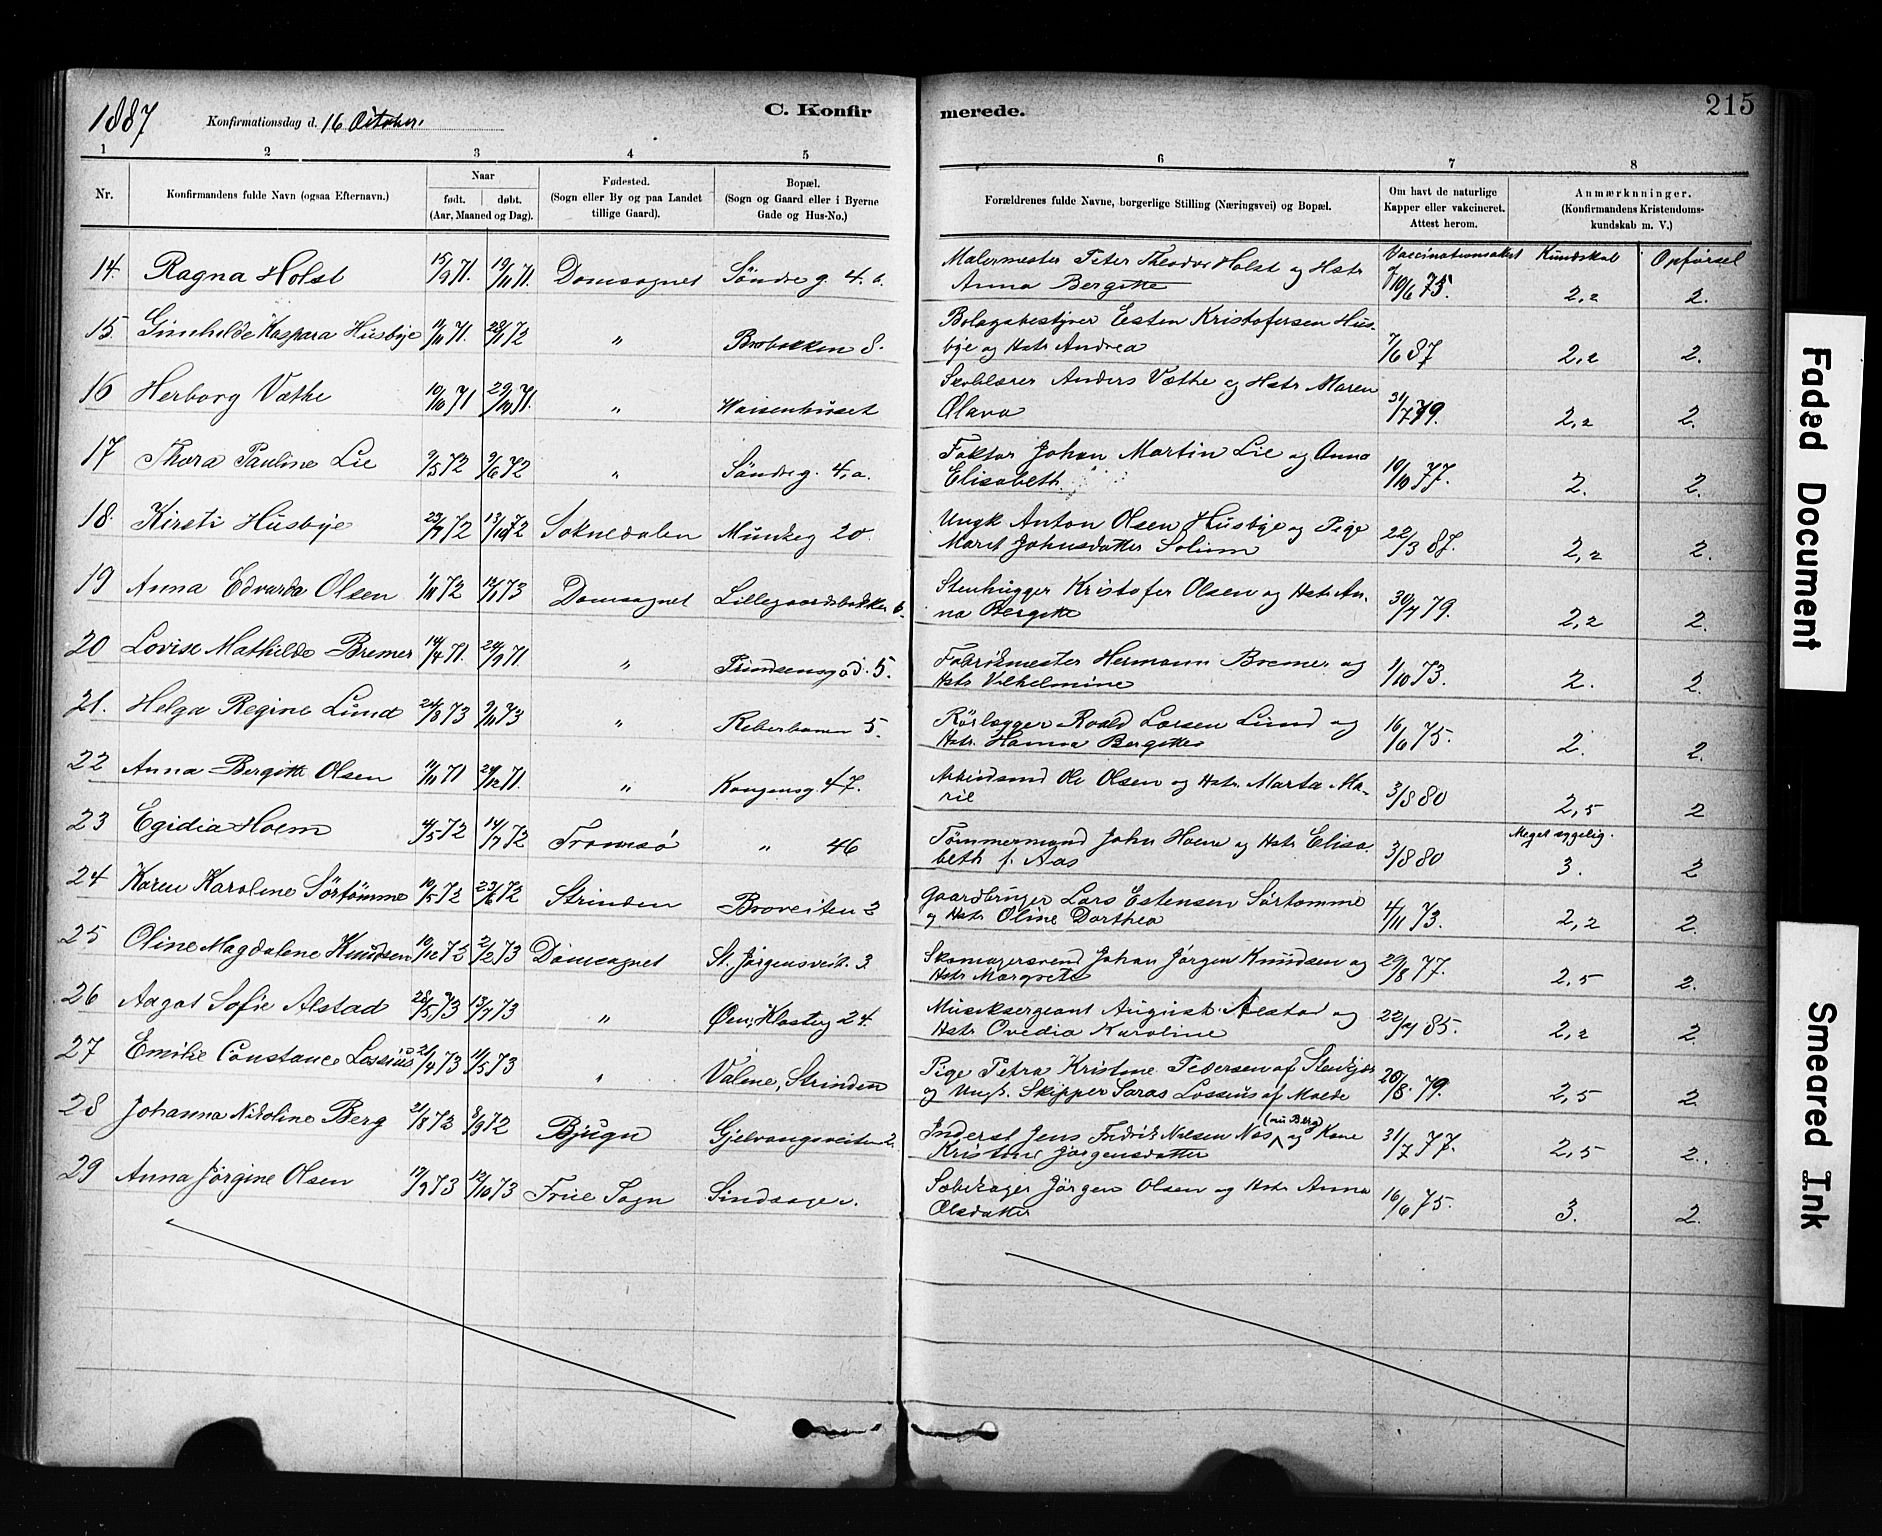 1887 Konfirmationsdag d. 16 October C. Konfirmerede. 215
1 2 3 4 5 6 7 8
Nr. Konfirmandens fulde Navn (ogsaa Efternavn.) Naar født. døbt. (Aar, Maaned og Dag). Fødested. (Sogn eller By og paa Landet tillige Gaard). Bopæl. (Sogn og Gaard eller i Byerne Gade og Hus-No.) Forældrenes fulde Navne, borgerlige Stilling (Næringsvei) og Bopæl. Om havt de naturlige Kapper eller vakcineret. Attest herom. Anmærkninger. (Konfirmandens Kristendomskundskab m. V.)
14. Ragna Holst 15/9 71. 19/11 71. Domsognet Söndre g. 4. b. Malermester Peter Theodor Holst og Hstr Vaccinationsattest Kundskab Opförsel
Anna Bergitte 10/6 75. 2,2 2.
15. Ginhilde Kaspara Husbye 11/11 71. 28/1 72 " Brobakken 8. Bolagsbestyrer Esten Kristofersen Hus-
bye og Hstr Andrea 7/6 87 2,2 2.
16 Herborg Væthe 10/10 71 29/10 71. " Waisenhuset Skolelærer Anders Væthe og Hstr Maren
Olava 31/7 79. 2,2 2.
17 Thora Pauline Lie 9/5 72 9/6 72 " Söndre g. 4, a. Faktor Johan Martin Lie og Anna
Elisabeth 10/10 77. 2. 2.
18. Kirsti Husbye 23/7 72 13/10 72 Soknedalen Munkeg 20. Ungk Anton Olsen Husbye og Pige
Marit Johnsdatter Solium 22/3 87. 2,2 2.
19 Anna Edvarda Olsen 1/11 72 12/1 73 Domsognet Lillegaardsbakken 6. Stenhugger Kristofer Olsen og Hstr An-
na Bergitte 30/7 79. 2,2 2.
20 Lovise Mathilde Bremer 14/4 71. 24/9 71 " 5. Fabrikmester Hermann Bremer og
Hstr Vilhelmine 1/10 73. 2. 2.
21. Helga Regine Lund 24/8 73 9/11 73 " Reberbanen 5. Rørlægger Roald Larsen Lund og
Hstr. Hanna Bergitte 16/6 75. 2. 2.
22 Anna Bergitte Olsen 11/11 71 24/12 71. " Kongensg. 47. Arbeidsmd Ole Olsen og Hstr. Marta Ma-
rie 3/8 80 2,5 2
23 Egidia Hoem 4/5 72 14/7 72 Tromsø " 46 Tömmermand John Hoem og Hstr Elisa- Meget sygelig.
beth f. Aas 3/8 80 3. 2
24 Karen Karoline Sörtömme 10/5 72 23/6 72 Strinden Broveiten 2 Gaardbruger Lars Estensen Sörtomme
og Hstr Oline Dorthea 4/11 73. 2,2 2.
25 Oline Magdalene Knudsen 10/12 72 2/2 73 Domsognet St. Jørgensveit. 3. Skomagersvend Johan Jørgen Knudsen og
Hstr Margrete 29/8 77. 2,5 2.
26 Aagot Sofie Alstad 28/5 73 13/7 73 " Øen, Klosterg 24. Musiksergeant August Alstad og
Hstr Ovedia Karoline 22/4 85. 2,2 2.
27 Emilie Constance Lossius 21/4 73 11/5 73 " Valene, Strinden Pige Petra Kristine Pedersen af Stenkjær
og Ungk. Skipper Saras Lossius af Molde 20/8. 79. 2,5 2.
28 Johanna Nikoline Berg 21/8 72 8/9 72 Bjugn Gjelvangsveiten 2. Inderst Jens Fredrik Nilsen Næs (nu Berg) og Kone
Kristine Jørgensdatter 31/7 77. 2,5 2.
29 Anna Jörgine Olsen 17/9 73 12/10 73 Frue Sogn Sindsager. Jörgen Olsen og Hstr Anna
Olsdatter 16/6 75. 3. 2.
Faded Document
Smeared Ink